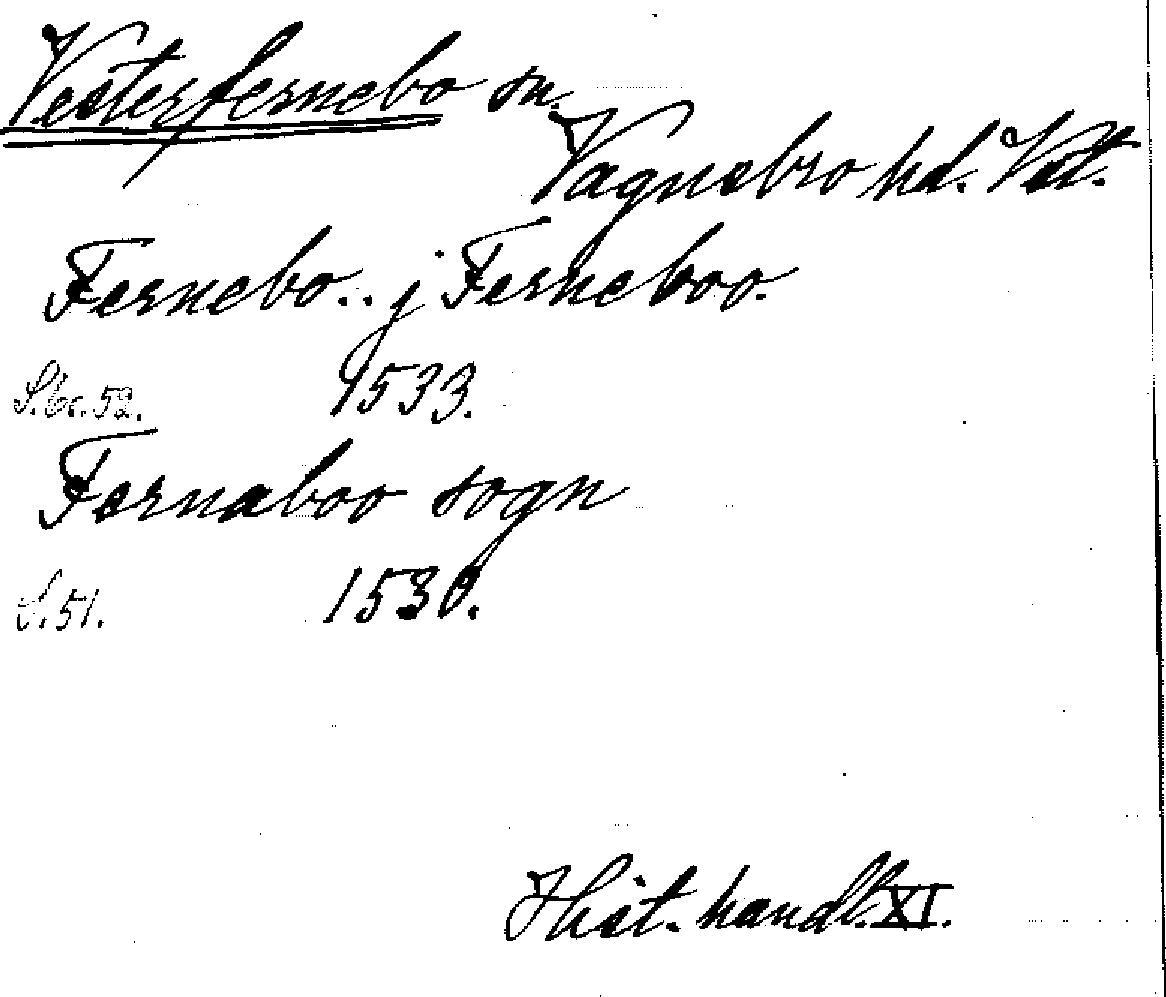 Vesterfernebo sn.
Vagnsbro hd. Vstt.
Fernebo.. j Ferneboo.
S. 52. 1533.
Fernaboo sogn
S. 51. 1530.
Hist. handl. XI.